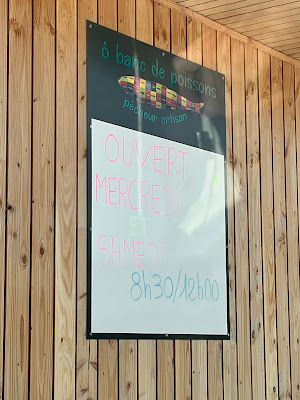 ô banc de poissons
pêcheur artisan
OUVERT
MERCREDI
ET
SAMEDI
8h30/12h00